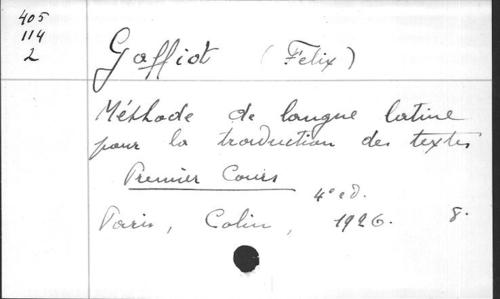 405
114
2
Gaffiot (Félix)
Méthode de langue latine
pour la traduction des textes
Premier Cours
4e ed.
Paris, Colin, 1926. 8.